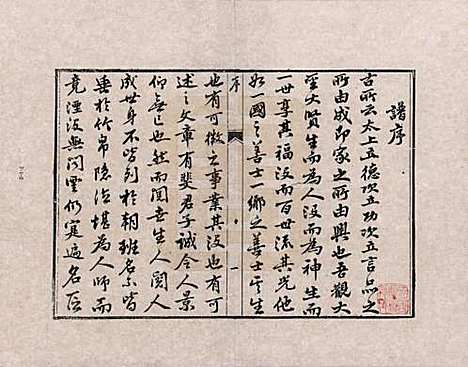 譜序
古所云太上立德次立功次立言品之
所由成即家之所由興也吾觀大
聖大賢生而為人沒而為神生而
一世享其福沒而百世流其光他
如一國之善士一鄉之善士其生
序
一
也有可徵之事業其沒也有可
述之文章有斐君子誠令人景
仰無已也然而閱吾生人閱人
成世身不皆列於朝班名不皆
垂於竹帛隱德堪為人師而
竟湮沒無聞雲仍寔遍名臣